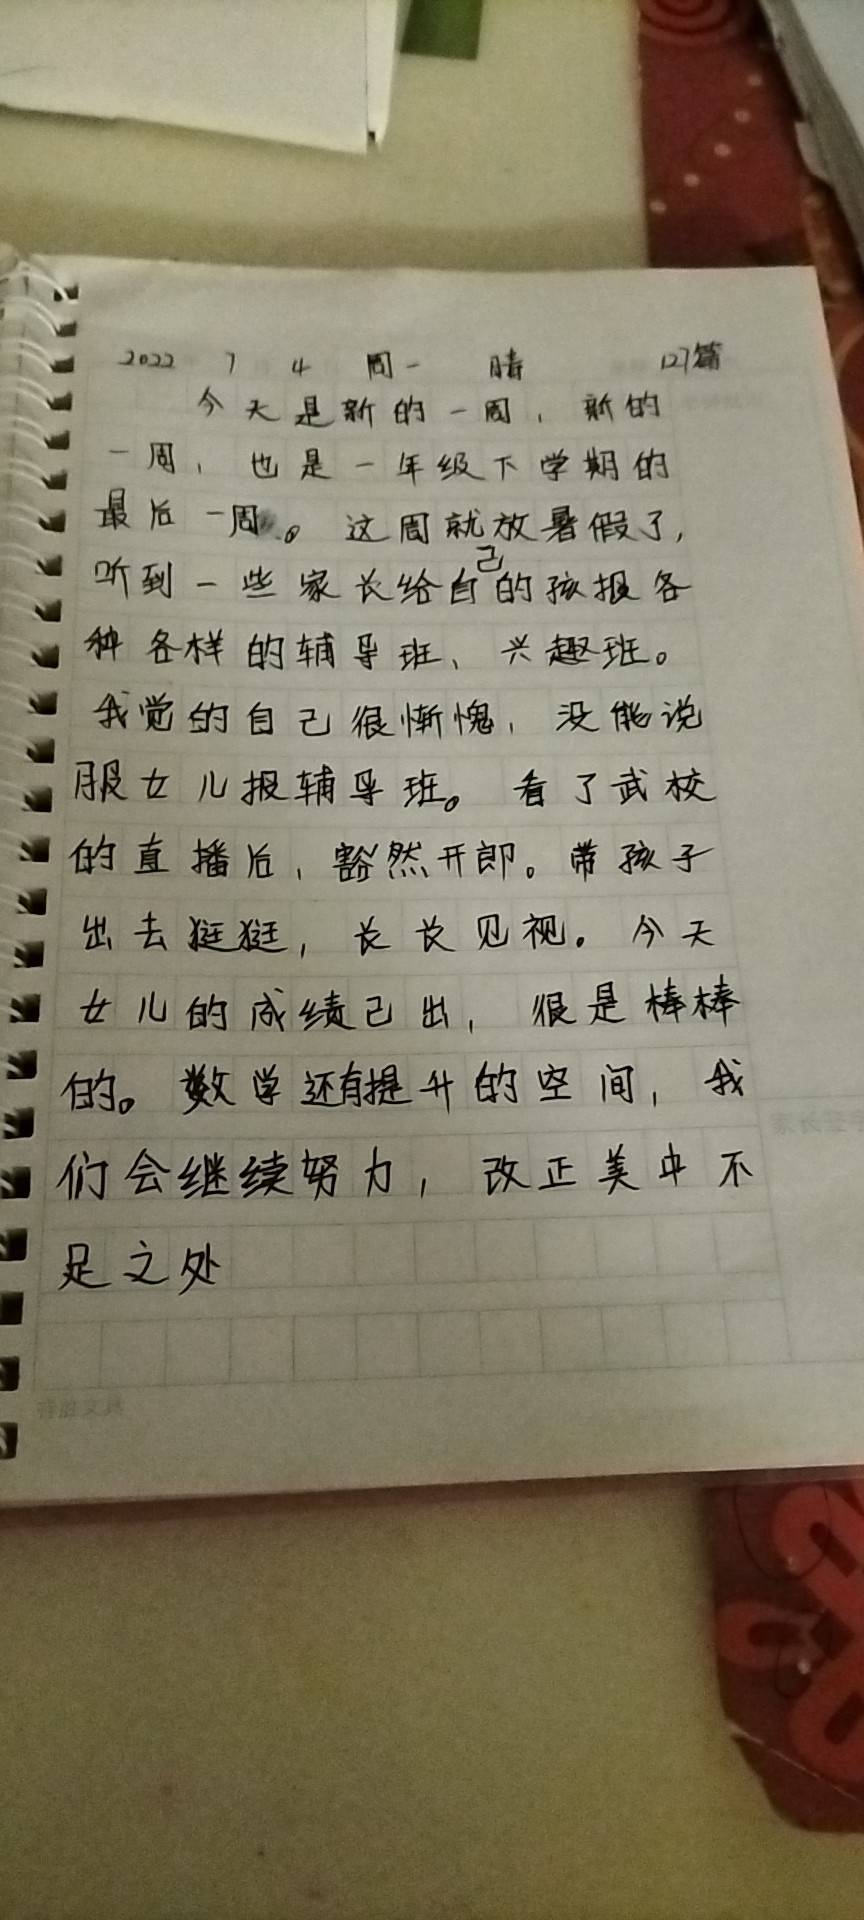 2022 7 4 周一 晴 127篇
今天是新的一周，新的
一周，也是一年级下学期的
最后一周。这周就放暑假了，
听到一些家长给自己的孩报各
种各样的辅导班、兴趣班。
我觉的自己很惭愧，没能说
服女儿报辅导班。看了武校
的直播后，豁然开郎。带孩子
出去
，长长见视。今天
女儿的成绩已出，很是棒棒
的。数学还有提升的空间，我
们会继续努力，改正美中不
足之处